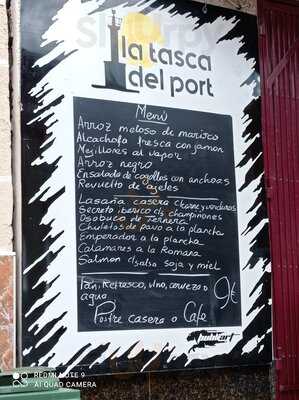 la tasca
del port
Menú
Arroz meloso de marisco
Alcachofa fresca con jamon
Mejillones al vapor
Arroz negro
Ensalada de cogollos con anchoas
Revuelto de ajeles
Lasaña casera c/carne y verduras
Secreto iberico c/s champiñones
Osobuco de Ternera
Chuletas de pavo a la plancha
Emperador a la plancha
Calamares a la Romana
Salmon c/salsa soja y miel
Pan, Refresco, vino, cerveza o
agua 9€
Postre casera o Café
REDMI NOTE 9
AI QUAD CAMERA